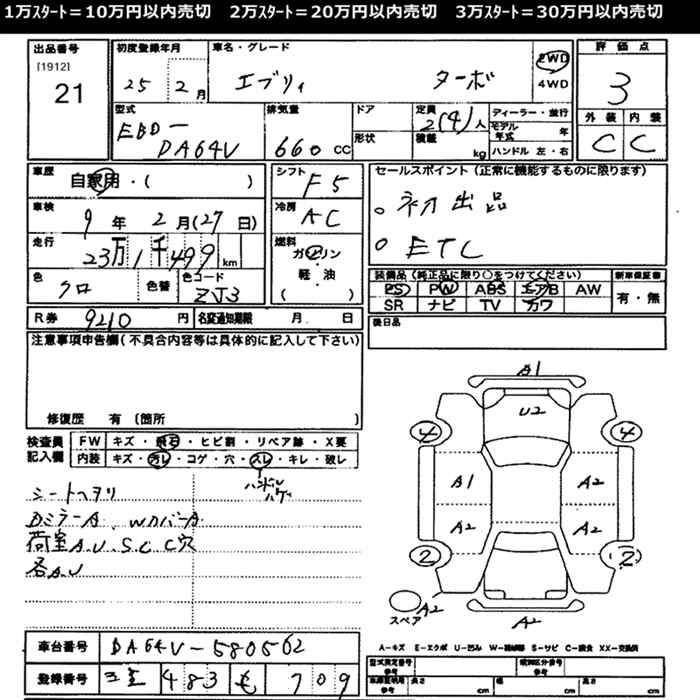 1万ｽﾀｰﾄ＝10万円以内売切 2万ｽﾀｰﾄ＝20万円以内売切 3万ｽﾀｰﾄ＝30万円以内売切
出品番号 初度登録年月 車名・グレード 評価点
[1912] 21 25 2月 エブリィ ターボ 2WD 4WD 3
型式 排気量 ドア 定員 ディーラー・並行 外装 内装
EBD- DA64V 660 CC 形状 2(4)人 積載 kg モデル年式 年 C C
ハンドル 左・右
車歴 自家用・( ) シフト F5 セールスポイント (正常に機能するものに限ります)
車検 9年2月(27日) 冷房 AC 初出品
走行 23万1千499km 燃料 ガソリン・軽油 ( ) ETC
色 クロ 色替 色コード ZJ3 装備品 (純正品に限り○をつけてください) 新車保証書
PS PW ABS エアB AW 有・無
SR ナビ TV カワ
R券 9210円 名変通知期限 月 日 後日品
注意事項申告欄(不具合内容等は具体的に記入して下さい)
修復歴 有 (箇所 )
検査員記入欄 FW キズ・飛石・ヒビ割・リペア跡・X要
内装 キズ・汚レ・コゲ・穴・スレ・キレ・破レ
ハンドル
シートヘタリ
DミラーA.
荷室A.U.S.C C穴
各A.U
A1
U2
4 4
A1 A2
A2 A2
2 2
スペア A2 A2
A-キズ E-エクボ U-凹ミ S-サビ C-腐食 XX-交換済
車台番号 DA64V-580562
登録番号 三重 483 も 709
型式指定番号 参考 類別区分番号 参考
参考 長さ cm 幅 cm 高さ cm